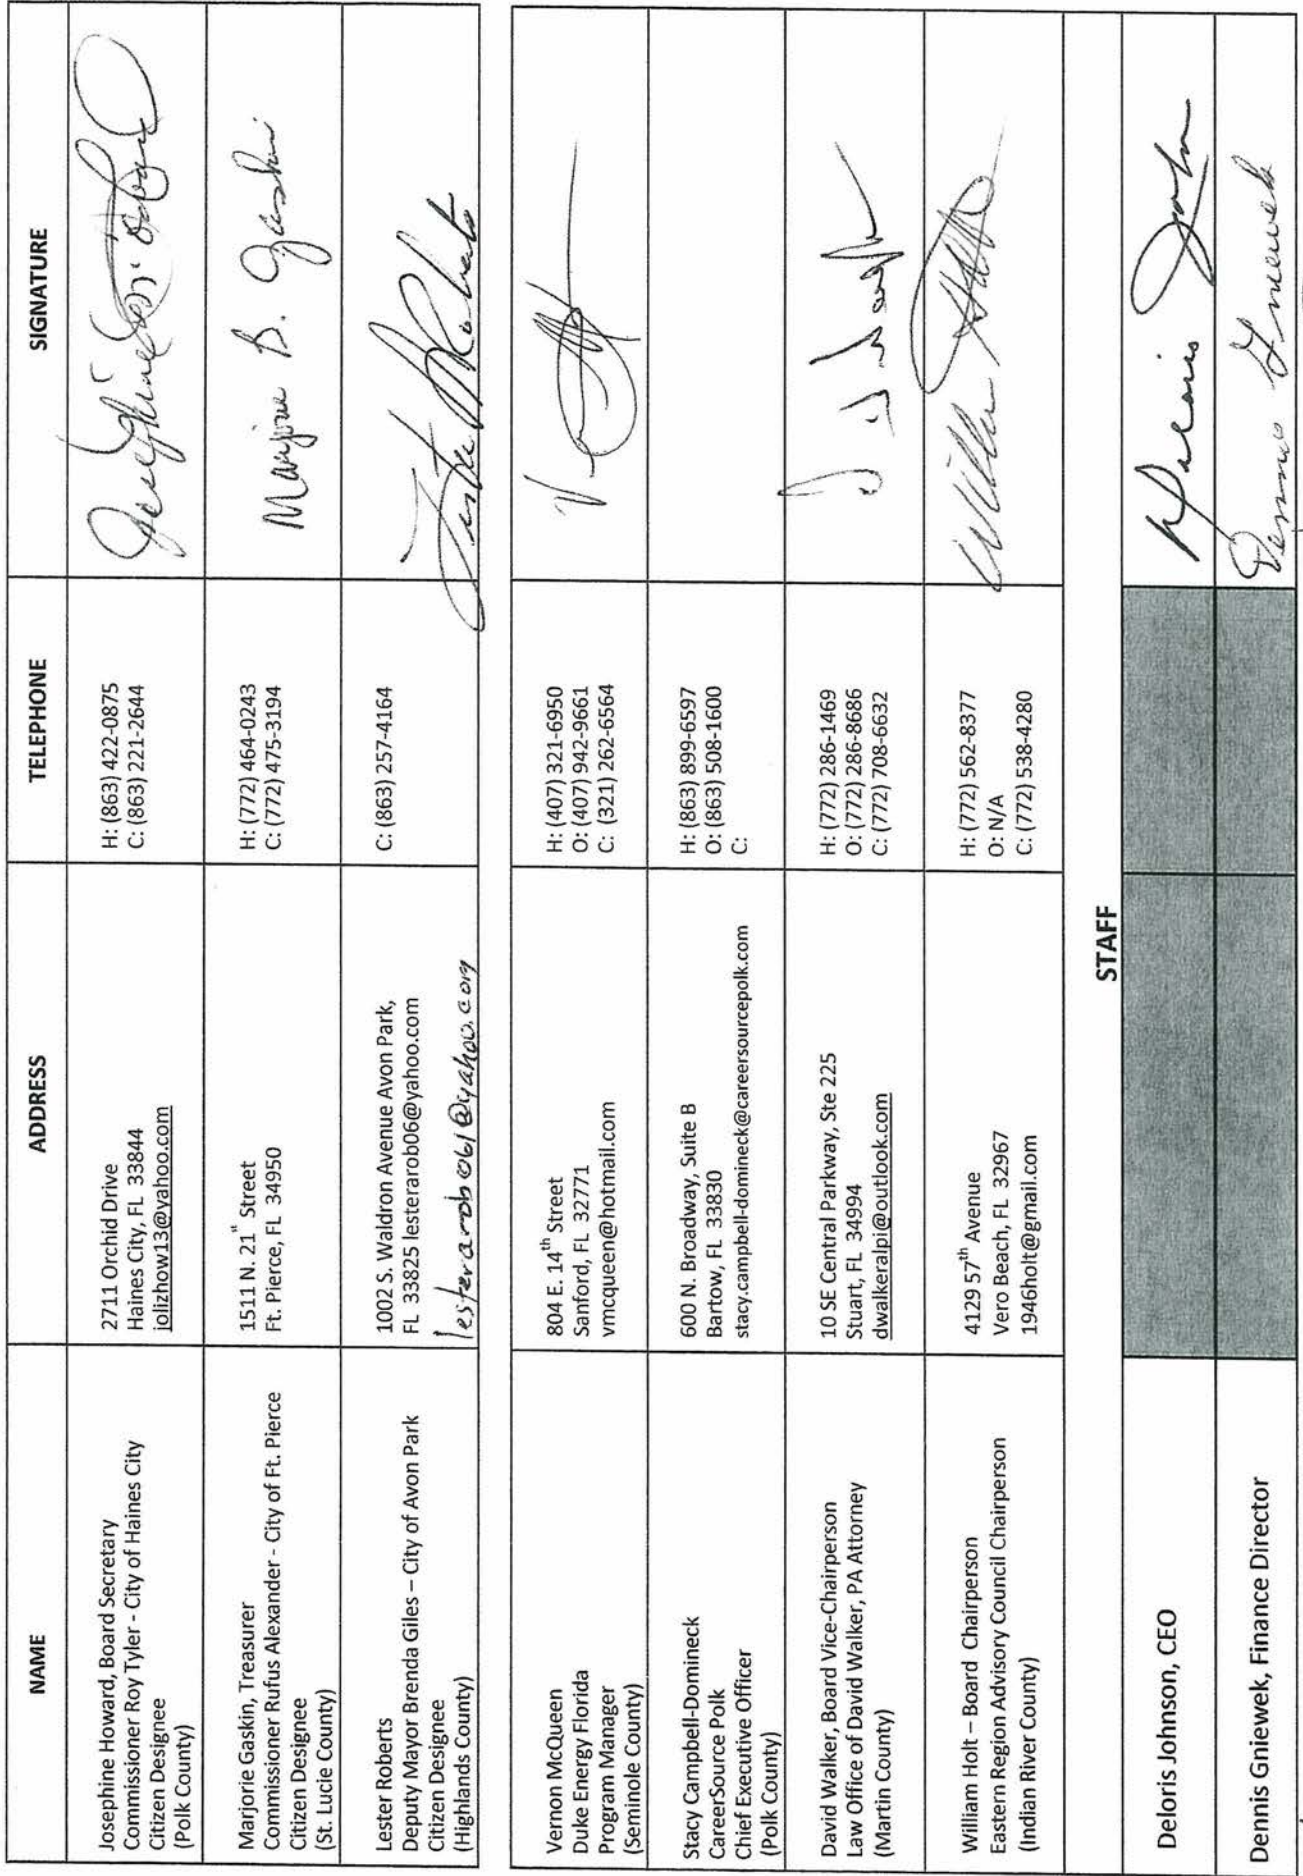 NAME
ADDRESS
TELEPHONE
SIGNATURE
Josephine Howard, Board Secretary
Commissioner Roy Tyler - City of Haines City
Citizen Designee
(Polk County)
2711 Orchid Drive
Haines City, FL 33844
jolizhow13@yahoo.com
H: (863) 422-0875
C: (863) 221-2644
Marjorie Gaskin, Treasurer
Commissioner Rufus Alexander - City of Ft. Pierce
Citizen Designee
(St. Lucie County)
1511 N. 21st Street
Ft. Pierce, FL 34950
H: (772) 464-0243
C: (772) 475-3194
Marjorie B. Gaskin
Lester Roberts
Deputy Mayor Brenda Giles – City of Avon Park
Citizen Designee
(Highlands County)
1002 S. Waldron Avenue Avon Park,
FL 33825 lesterarob06@yahoo.com
lesterarob061@yahoo.com
C: (863) 257-4164
Lester Roberts
Vernon McQueen
Duke Energy Florida
Program Manager
(Seminole County)
804 E. 14th Street
Sanford, FL 32771
vmcqueen@hotmail.com
H: (407) 321-6950
O: (407) 942-9661
C: (321) 262-6564
Stacy Campbell-Domineck
CareerSource Polk
Chief Executive Officer
(Polk County)
600 N. Broadway, Suite B
Bartow, FL 33830
stacy.campbell-domineck@careersourcepolk.com
H: (863) 899-6597
O: (863) 508-1600
C:
David Walker, Board Vice-Chairperson
Law Office of David Walker, PA Attorney
(Martin County)
10 SE Central Parkway, Ste 225
Stuart, FL 34994
dwalkeralpi@outlook.com
H: (772) 286-1469
O: (772) 286-8686
C: (772) 708-6632
William Holt – Board Chairperson
Eastern Region Advisory Council Chairperson
(Indian River County)
4129 57th Avenue
Vero Beach, FL 32967
1946holt@gmail.com
H: (772) 562-8377
O: N/A
C: (772) 538-4280
STAFF
Deloris Johnson, CEO
Dennis Gniewek, Finance Director
Dennis Gniewek